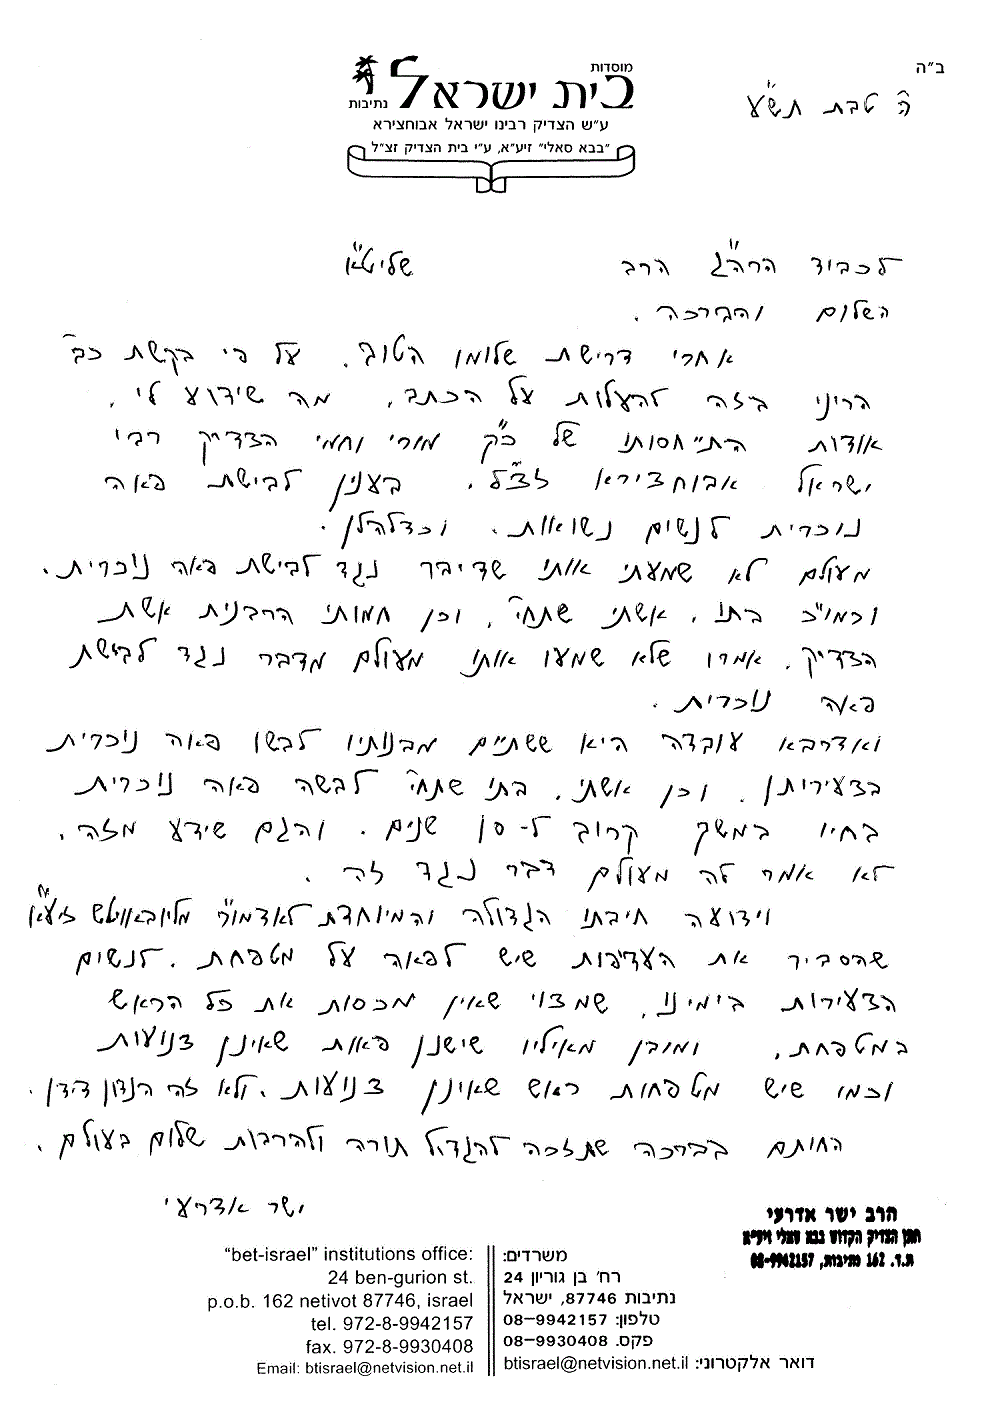 ב"ה
ה' טבת תש"ע
מוסדות
בית ישראל
נתיבות
ע"ש הצדיק רבינו ישראל אבוחצירא
"בבא סאלי" זיע"א, ע"י בית הצדיק זצ"ל
לכבוד הרה"ג הרב שליט"א
השלום והברכה.
אחרי דרישת שלומו הטוב. על פי בקשת כב'
הריני בזה להעלות על הכתב, מה שידוע לי,
אודות התייחסותו של כ"ק מורי וחמי הצדיק רבי
ישראל אבוחצירא זצ"ל. בענין לבישת פאה
נוכרית לנשים נשואות. וכדלהלן.
מעולם לא שמעתי אותו שדיבר נגד לבישת פאה נוכרית.
וכמו"כ בתו, אשתי שתחי', וכן חמותי הרבנית אשת
הצדיק, אמרו שלא שמעו אותו מעולם מדבר נגד לבישת
פאה נוכרית.
ואדרבא עובדה היא ששתיים מבנותיו לבשו פאה נוכרית
בצעירותן. וכן אשתי, בתו שתחי' לבשה פאה נוכרית
בחייו במשך קרוב ל-סן שנים. והגם שידע מזה,
לא אמר לה מעולם דבר נגד זה.
וידועה חיבתו הגדולה והמיוחדת לאדמו"ר מליובאוויטש זיע"א
שהסביר את העדיפות שיש לפאה על מטפחת. לנשים
הצעירות בימינו, שמצוי שאין מכסות את כל הראש
במטפחת, ומובן מאיליו שישנן פאות שאינן צנועות
וכמו שיש מטפחות ראש שאינן צנועות. ולא זה הנדון דידן.
החותם בברכה שתזכה להגדיל תורה ולהרבות שלום בעולם.
ישר אדרעי
הרב ישר אדרעי
חתן הצדיק הקדוש בבא סאלי זיע"א
ת.ד. 162 נתיבות, 08-9942157
"bet-israel" institutions office:
24 ben-gurion st.
p.o.b. 162 netivot 87746, israel
tel. 972-8-9942157
fax. 972-8-9930408
Email: btisrael@netvision.net.il
משרדים:
רח' בן גוריון 24
נתיבות 87746, ישראל
טלפון: 08-9942157
פקס. 08-9930408
דואר אלקטרוני: btisrael@netvision.net.il